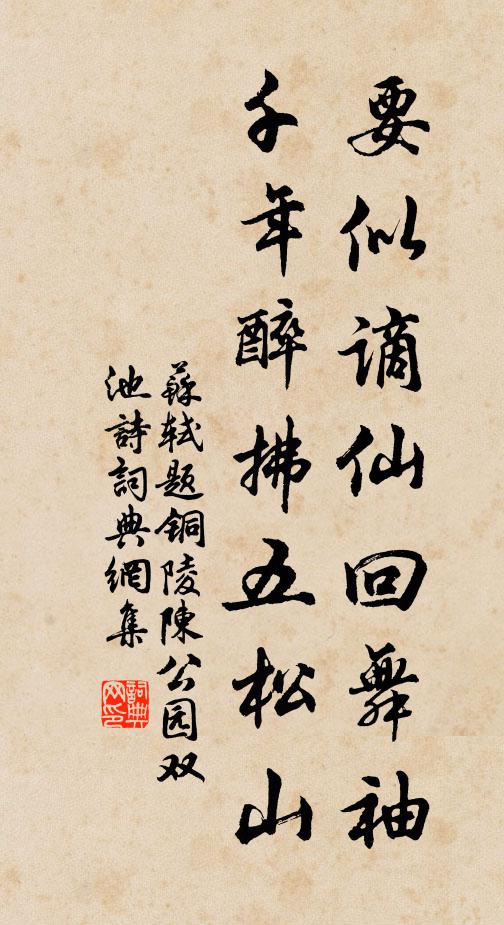 要似谪仙回舞袖
千年醉拂五松山
蘇轼题铜陵陳公园双
池詩詞典網集
詞典
网印